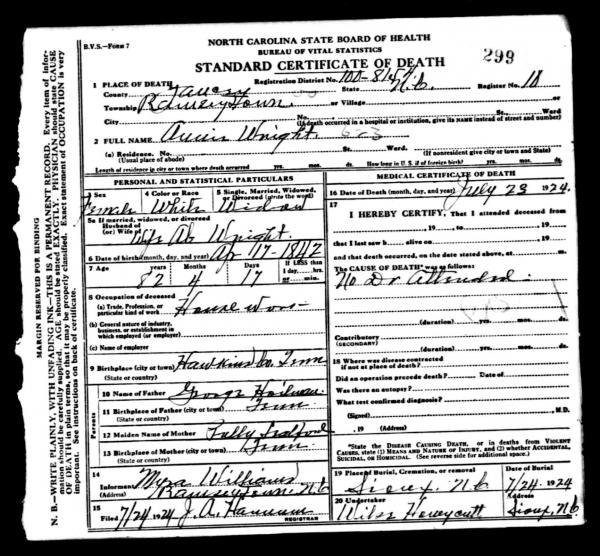 B.V.S.—Form 7
NORTH CAROLINA STATE BOARD OF HEALTH
BUREAU OF VITAL STATISTICS
STANDARD CERTIFICATE OF DEATH
299
1 PLACE OF DEATH
Registration District No. 100-8147
Register No. 18
County Yancey State N.C.
Township Ramseytown or Village
City No. St., Ward
(If death occurred in a hospital or institution, give its name instead of street and number)
2 FULL NAME Wright
(a) Residence. No. St. Ward.
(Usual place of abode) (If nonresident give city or town and State)
Length of residence in city or town where death occurred yrs. mos. ds. How long in U. S. if of foreign birth? yrs. mos. ds.
PERSONAL AND STATISTICAL PARTICULARS
3 Sex 4 Color or Race 5 Single, Married, Widowed, or Divorced (write the word)
Female White Widow
5a If married, widowed, or divorced
Husband of
(or) Wife of Wright
6 Date of birth (month, day, and year) Ap 17- 1842
7 Age years Months Days If LESS than 1 day, hrs. or min.
82 4 17
8 Occupation of deceased
(a) Trade, Profession, or particular kind of work House
(b) General nature of industry, business, or establishment in which employed (or employer)
(c) Name of employer
9 Birthplace (city or town) Hawkins Co. Tenn
(State or country)
Parents
10 Name of Father George
11 Birthplace of Father (city or town) Tenn
(State or country)
12 Maiden Name of Mother
13 Birthplace of Mother (city or town) Tenn
(State or country)
14
Informant Myra Williams
(Address) Ramseytown. N.C.
15
Filed 7/24 1924 J. A. Hannum
REGISTRAR
MEDICAL CERTIFICATE OF DEATH
16 Date of Death (month, day, and year) July 23 1924.
17
I HEREBY CERTIFY, That I attended deceased from
, 19 , to , 19
that I last saw h alive on , 19
and that death occurred, on the date stated above, at m.
The CAUSE OF DEATH* was as follows:
No Dr Attended
(duration) yrs. mos. ds.
Contributory
(SECONDARY)
(duration) yrs. mos. ds.
18 Where was disease contracted
if not at place of death?
Did an operation precede death? Date of
Was there an autopsy?
What test confirmed diagnosis?
(Signed) , M.D.
, 19 (Address)
*State the DISEASE CAUSING DEATH, or in deaths from VIOLENT CAUSES, state (1) MEANS AND NATURE OF INJURY, and (2) whether ACCIDENTAL, SUICIDAL, OR HOMICIDAL. (See reverse side for additional space.)
19 Place of Burial, Cremation, or removal Date of Burial
Sioux, N.C. 7/24 1924
20 Undertaker Address
Honeycutt Sioux, N.C.
MARGIN RESERVED FOR BINDING
N. B.—WRITE PLAINLY, WITH UNFADING INK—THIS IS A PERMANENT RECORD. Every item of information should be carefully supplied. AGE should be stated EXACTLY. PHYSICIAN should state CAUSE OF DEATH in plain terms, so that it may be properly classified. Exact statement of OCCUPATION is very important. See instructions on back of certificate.